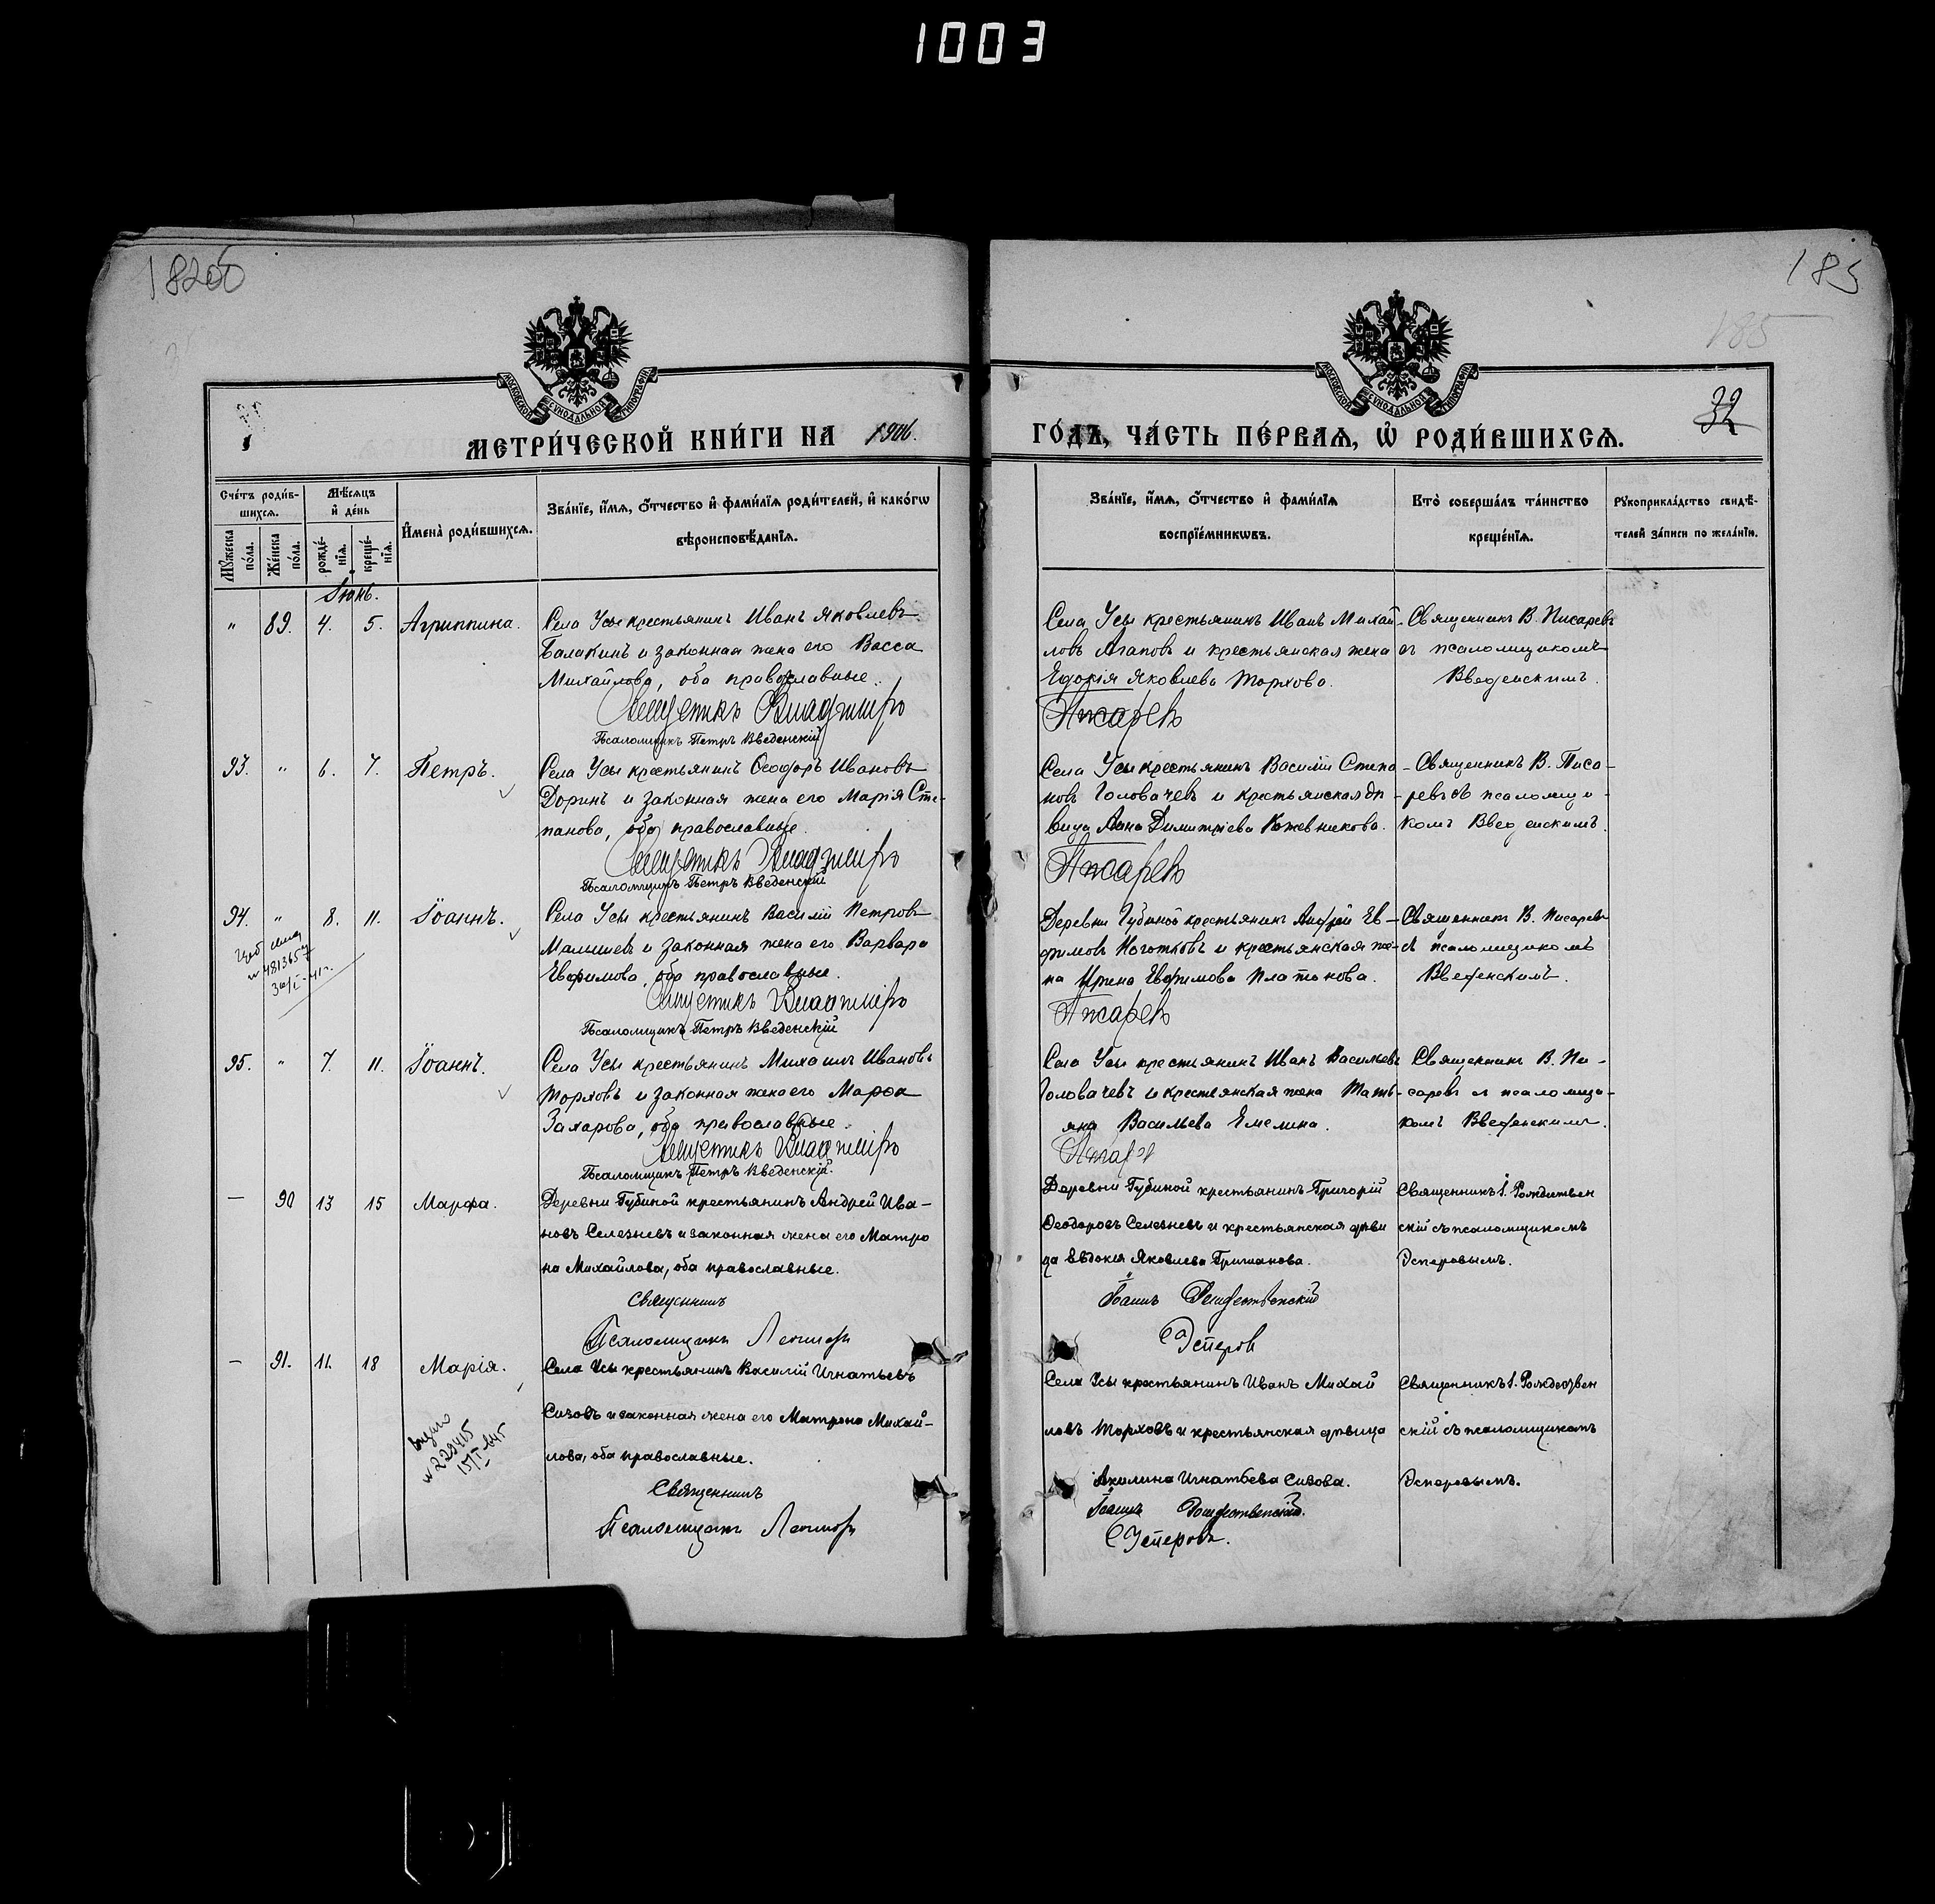 1003
185
185
МОСКОВСКОЙ СѴНОДАЛЬНОЙ ТИПОГРАФІИ
МОСКОВСКОЙ СѴНОДАЛЬНОЙ ТИПОГРАФІИ
32
МЕТРИ́ЧЕСКОЙ КНИ́ГИ НА 1906.
ГО́ДЪ, ЧА́СТЬ ПЕ́РВАѦ, Ѡ҆ РОДИ́ВШИХСѦ.
Сче́тъ роди́в-
шихсѧ.
Мѣ́сѧцъ
и҆ де́нь
Мꙋ́жеска
по́ла.
Же́нска
по́ла.
рожде́-
нїѧ.
креще́-
нїѧ.
И҆мена̀ роди́вшихсѧ.
Зва́нїе, и҆́мѧ, ѻ҆́тчество и҆ фами́лїѧ роди́телей, и҆ како́гѡ
вѣроисповѣ́данїѧ.
Зва́нїе, и҆́мѧ, ѻ҆́тчество и҆ фами́лїѧ
воспрїе́мникѡвъ.
Кто̀ соверша́лъ та́инство
креще́нїѧ.
Рꙋкоприкла́дство свидѣ́-
телей за́писи по жела́нїю.
Іюнь.
" 89. 4. 5. Агриппина.
Села Усы крестьянинъ Иванъ Яковлевъ
Балакинъ и законная жена его Васса
Михайлова, оба православные.
Священникъ Владиміръ
Псаломщикъ Петръ Введенскій
Села Усы крестьянинъ Иванъ Михай-
ловъ Агаповъ и крестьянская жена
Евдокія Яковлева Торхова.
Писаревъ
Священникъ В. Писаревъ
съ псаломщикомъ
Введенскимъ.
93. " 6. 7. Петръ.
Села Усы крестьянинъ Ѳеодоръ Ивановъ
Доринъ и законная жена его Марія Сте-
панова, оба православные.
Священникъ Владиміръ
Псаломщикъ Петръ Введенскій
Села Усы крестьянинъ Василій Степа-
новъ Головачевъ и крестьянская дѣ-
вица Анна Димитріева Кожевникова.
Писаревъ
Священникъ В. Писа-
ревъ съ псаломщи-
комъ Введенскимъ.
94. " 8. 11. Іоаннъ.
Села Усы крестьянинъ Василій Петровъ
Малышевъ и законная жена его Варвара
Евфимова, оба православные.
Священникъ Владиміръ
Псаломщикъ Петръ Введенскій
Деревни Губиной крестьянинъ Андрей Ев-
фимовъ Ноготковъ и крестьянская же-
на Ирина Евфимова Платонова.
Писаревъ
Священникъ В. Писаревъ
съ псаломщикомъ
Введенскимъ.
95. " 7. 11. Іоаннъ.
Села Усы крестьянинъ Михаилъ Ивановъ
Торховъ и законная жена его Марѳа
Захарова, оба православные.
Священникъ Владиміръ
Псаломщикъ Петръ Введенскій.
Села Усы крестьянинъ Иванъ Васильевъ
Головачевъ и крестьянская жена Тать-
яна Васильева Емелина.
Писаревъ
Священникъ В. Пи-
саревъ съ псаломщи-
комъ Введенскимъ.
— 90 13 15 Марфа.
Деревни Губиной крестьянинъ Андрей Ива-
новъ Селезневъ и законная жена его Матро
на Михайлова, оба православные.
Священникъ
Псаломщикъ
Деревни Губиной крестьянинъ Григорій
Ѳеодоровъ Селезневъ и крестьянская дѣви
ца Евдокія Яковлева Гришанова.
Іоаннъ Рождественскій
Эсперовъ
Священникъ І. Рождествен
скій съ псаломщикомъ
Эсперовымъ.
— 91. 11. 18 Марія.
Села Усы крестьянинъ Василій Игнатьевъ
Сизовъ и законная жена его Матрона Михай-
лова, оба православные.
Священникъ
Псаломщикъ
Села Усы крестьянинъ Иванъ Михай
ловъ Торховъ и крестьянская дѣвица
Акилина Игнатьева Сизова.
Іоаннъ Рождественскій.
Эсперовъ.
Священникъ І. Рождествен
скій съ псаломщикомъ
Эсперовымъ.